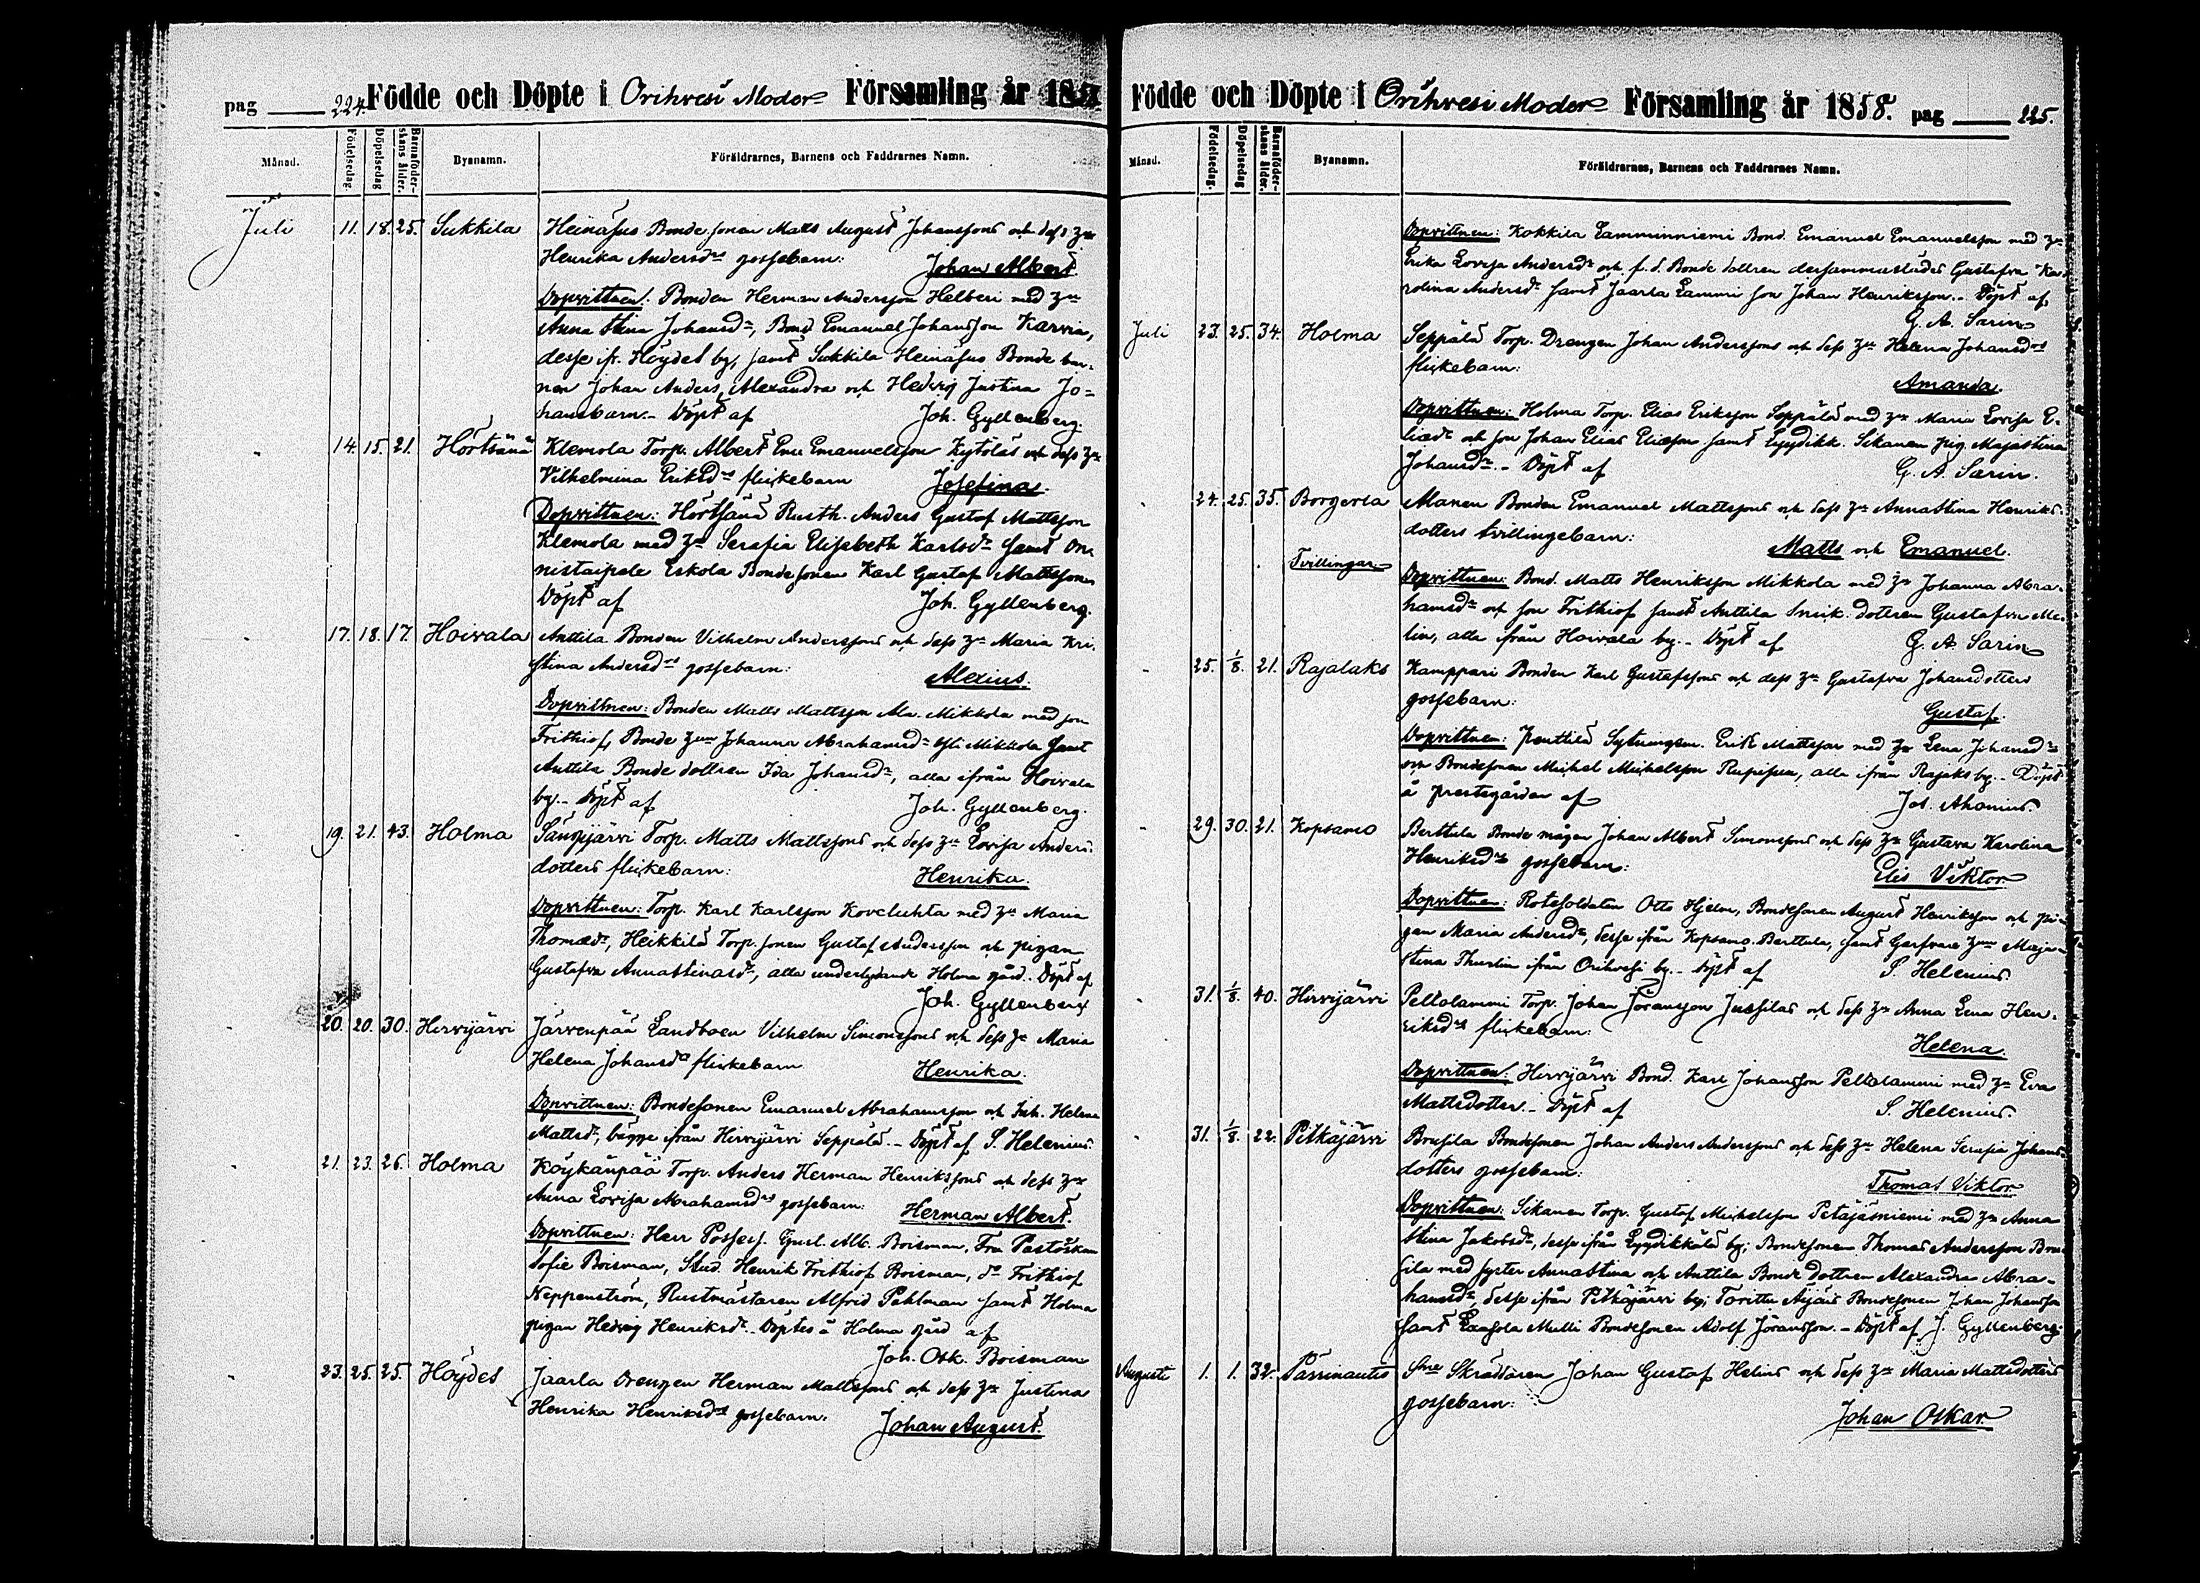 pag 224. Födde och Döpte i Orihvesi Moder Församling år 1858
Månad. Födelsedag. Döpelsedag Barnaföderskans ålder. Bynamn. Föräldrarnes, Barnens och Faddrarnes Namn.
Juli 11. 18. 25. Sukkila Heinäsus Bonde sonen Matts August Johanssons och dess hu
Henrika Andersdrs gossebarn: Johan Albert.
Dopvittnen: Bonden Herman Andersson Helberi med hu
Anna Stina Johansdr, Bond Emanuel Johansson Karvia,
desse ifr. Höydes by, samt Sukkila Heinäsus Bonde bar-
nen Johan Anders, Alexandra och Hedvig Justina Jo-
hansbarn. Döpt af Joh. Gyllenberg.
14. 15. 21. Hörtsänä Klemola Torp. Albert Em. Emanuelsson Kytölás och dess hu
Vilhelmina Eriksdrs flickebarn Josefina.
Dopvittnen: Hörtsänä Rusth. Anders Gustaf Mattsson
Klemola med hu Serafia Elisabeth Karlsdr samt On-
nistaipale Eskola Bondesonen Karl Gustaf Mattsson
Döpt af Joh. Gyllenberg.
17. 18. 17. Hoivala Anttila Bonden Vilhelm Anderssons och dess hu Maria Kri-
stina Andersdrs gossebarn: Alexius.
Dopvittnen: Bonden Matts Mattsson Ala-Mikkola med son
Frithiof, Bonde hu Johanna Abrahamsdr Yli Mikkola samt
Anttila Bonde dottren Ida Johansdr, alla ifrån Hoivala
by. Döpt af Joh. Gyllenberg.
19. 21. 43. Holma Sänpijärvi Torp. Matts Mattssons och dess hu Lovisa Anders-
dotters flickebarn: Henrika.
Dopvittnen: Torp. Karl Karlsson Koveluhta med hu Maria
Thomædr, Heikkilä Torp. sonen Gustaf Andersson och pigan
Gustafva Annastinasdr, alla underlydande Holma gård. Döpt af
Joh. Gyllenberg
20. 20. 30. Hirvijärvi Järvenpää Landboen Vilhelm Simonssons och dess hu Maria
Helena Johansdrs flickebarn Henrika.
Dopvittnen: Bondesonen Emanuel Abrahamsson och Inh. Helena
Mattsdr, bägge ifrån Hirvijärvi Seppälä. Döpt af S. Helenius
21. 23. 26. Holma Köykänpää Torp. Anders Herman Henrikssons och dess hu
Anna Lovisa Abrahamsdrs gossebarn: Herman Albert.
Dopvittnen: Herr Possess. Gust. Alb. Boisman, Fru Pastorskan
Sofie Boisman, Stud. Henrik Frithiof Boisman, do Frithiof
Neppenström, Rustmästaren Alfrid Pehlman samt Holma
pigan Hedvig Henriksdr. Döptes å Holma gård af
Joh. Osk. Boisman
23. 25. 25. Höydes Jaarla Drengen Herman Mattssons och dess hu Justina
Henrika Henriksdrs gossebarn: Johan August.
Födde och Döpte i Orihvesi Moder Församling år 1858. pag 225.
Månad. Födelsedag. Döpelsedag Barnaföderskans ålder. Bynamn. Föräldrarnes, Barnens och Faddrarnes Namn.
Dopvittnen: Kokkila Lamminniemi Bond. Emanuel Emanuelsson med hu
Erika Lovisa Andersdr och f.d. Bonde dottren dersammastädes Gustafva Ka-
rolina Andersdr samt Jaarla Lammi son Johan Henriksson. Döpt af
G. A. Sarin
Juli 23. 25. 34. Holma Seppälä Torp. Drengen Johan Anderssons och dess hu Helena Johansdrs
flickebarn: Amanda.
Dopvittnen: Holma Torp. Elias Eriksson Seppälä med hu Maria Lovisa E-
liædr och son Johan Elias Eliæson samt Lyydikk. Sikanen pig. Majastina
Johansdr. Döpt af G. A. Sarin.
24. 25. 35. Borgerla Alanen Bonden Emanuel Mattssons och dess hu Annastina Henriks-
dotters tvillingebarn: Matts och Emanuel.
Tvillingar Dopvittnen: Bond. Matts Henriksson Mikkola med hu Johanna Abra-
hamsdr och son Frithiof samt Anttila Snick. dottren Gustafva Me-
lin, alla ifrån Hoivala by. Döpt af G. A. Sarin
25. 1/8. 21. Rajalaks Kamppari Bonden Karl Gustafssons och dess hu Gustafva Johansdotters
gossebarn: Gustaf.
Dopvittnen: Penttilä Sytningsm. Erik Mattsson med hu Lena Johansdr
och Bondesonen Michel Michelsson Rupisen, alla ifrån Rajalaks by. Döpt
å prestegården af Jos. Ahonius.
29. 30. 21. Kopsamo Berttula Bonde mågen Johan Albert Simonssons och dess hu Gustava Karolina
Henriksdrs gossebarn: Elis Viktor
Dopvittnen: Rotesoldaten Otto Hjelm, Bondesonen August Henriksson och pi-
gan Maria Andersdr, desse ifrån Kopsamo Berttula, samt Garfvare hu Maja-
stina Thurlin ifrån Orihvesi by. Döpt af S. Helenius.
31. 1/8. 40. Hirvijärvi Peltolammi Torp. Johan Jöransson Jussilas och dess hu Anna Lena Hen-
riksdrs flickebarn: Helena.
Dopvittnen: Hirvijärvi Bond. Karl Johansson Peltolammi med hu Eva
Mattsdotter. Döpt af S. Helenius.
31. 1/8. 22. Pitkäjärvi Brusila Bondesonen Johan Anders Anderssons och dess hu Helena Serafia Johans-
dotters gossebarn: Thomas Viktor
Dopvittnen: Sikanen Torp. Gustaf Michelsson Petäjäsniemi med hu Anna
Stina Jakobsdr, desse ifrån Lyydikkälä by; Bondesonen Thomas Andersson Bru-
sila med syster Annastina och Anttila Bonde dottren Alexandra Abra-
hamsdr desse ifrån Pitkäjärvi by; Torittu Äijäis Bondesonen Johan Johansson
samt Länsola Mulli Bondesonen Adolf Jöransson. Döpt af J. Gyllenberg.
Augusti 1. 1. 32. Pässinautio Sne Skräddaren Johan Gustaf Helins och dess hu Maria Mattsdotters
gossebarn: Johan Oskar